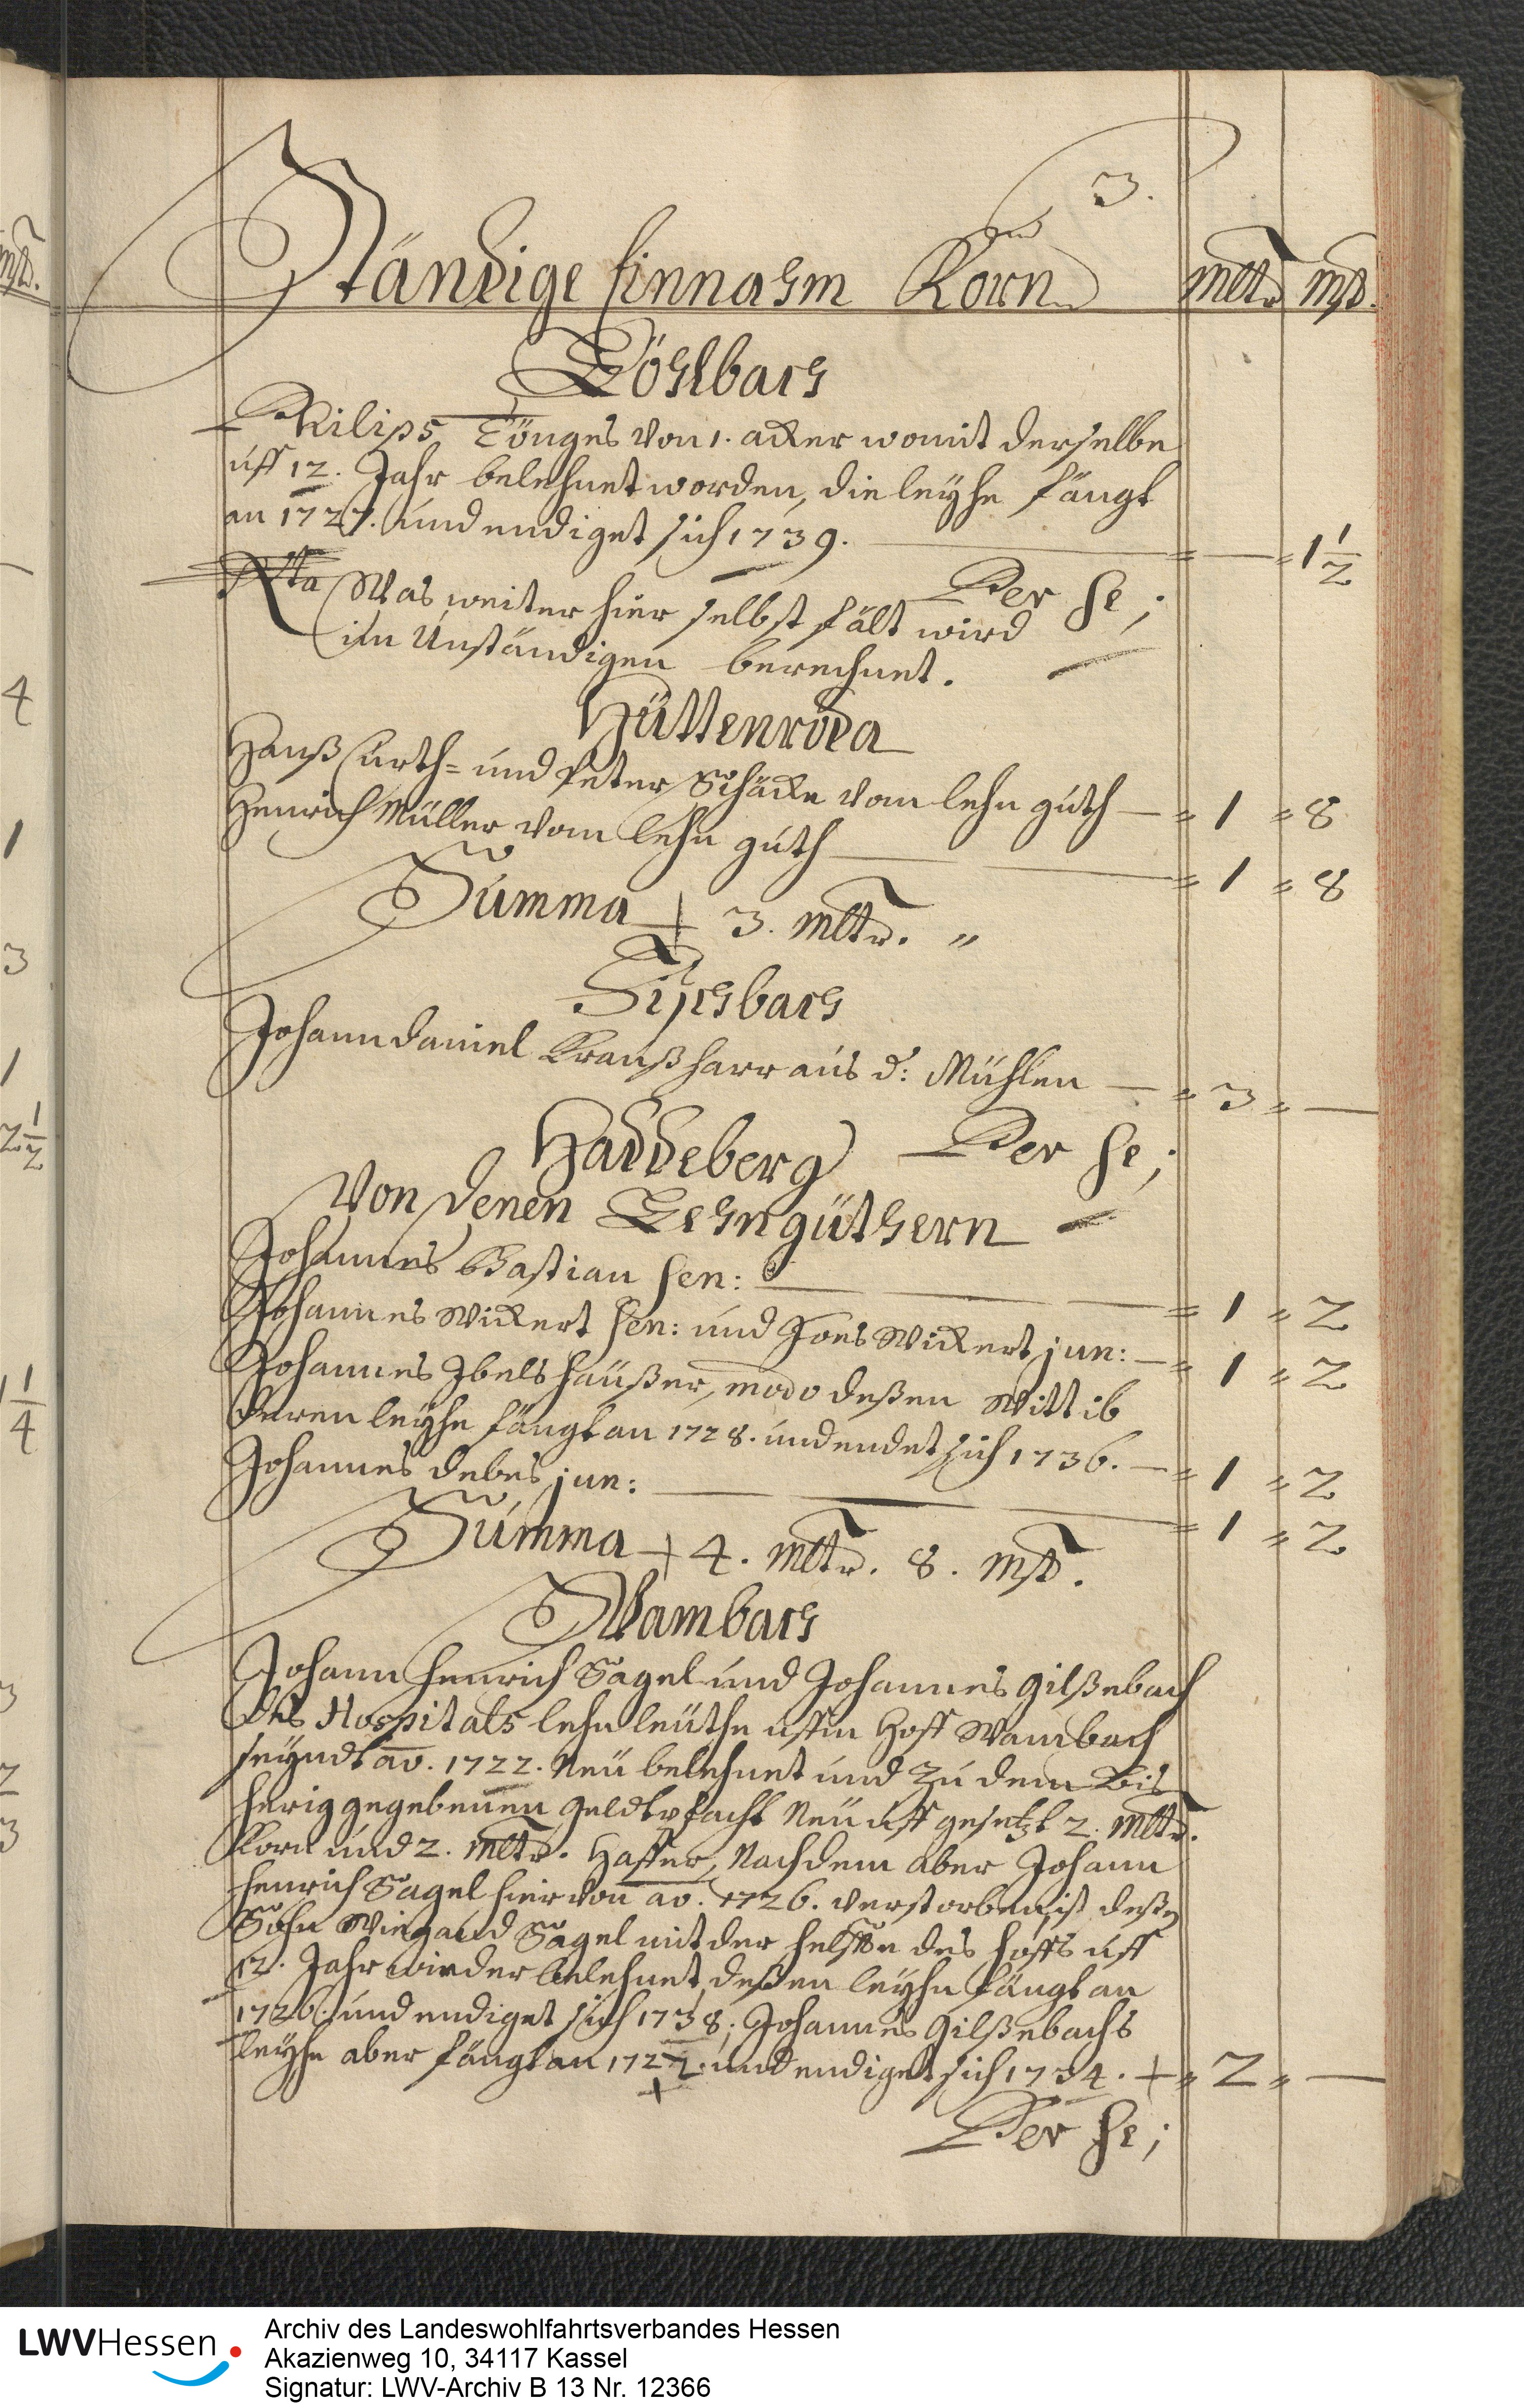 3.
Ständige Einnahm an Korn mltr. mß.
Löhlbach
Philips Tönges von 1. acker womit derselbe
uff 12. Jahr belehnet worden, die leyhe fängt
an 1727. und endiget sich 1739. — 1 1/2
Per se;
Nta Was weiter hier selbst fält wird
im Unständigen berechnet.
Hüttenroda
Hanß Curth- und Peter Schäcke vom lehn guth — 1 8
Henrich Müller vom lehn guth — 1 8
Summa 3. mltr. "
Sipchbach
Johann Daniel Kraußharr aus d: Mühlen — 3 —
Per se;
Haddeberg
Von denen Lehngüthern
Johannes Bastian sen: — 1 2
Johannes Wickert sen: und Joes Wickert jun: — 1 2
Johannes Ibelshäußer, modo deßen Wittib
deren leyhe fängt an 1728. und endet sich 1736. — 1 2
Johannes Debes jun: — 1 2
Summa 4. mltr. 8. mß.
Wambach
Johann Henrich Sagel und Johannes Gilßebach
des Hospitals lehn leuthe uffm Hoff Wambach
seyndt ao. 1722. Neu belehnet und zu dem Bis
herig gegebenen Geldtpfacht Neu uff gesetzt 2. mltr.
Korn und 2. mltr. Haffer, Nachdem aber Johann
Henrich Sagel hiervon ao. 1726. verstorben, ist deßen
Sohn Wiegand Sagel mit der helffte des Hoffs uff
12. Jahr wieder belehnet, deßen leyhe fängt an
1726. und endiget sich 1738; Johannes Gilßebachs
leyhe aber fängt an 1722. und endiget sich 1734. + 2 —
+
Per se;
mß.
4
1
3
1
2 1/2
1 1/4
3
3
LWVHessen
Archiv des Landeswohlfahrtsverbandes Hessen
Akazienweg 10, 34117 Kassel
Signatur: LWV-Archiv B 13 Nr. 12366